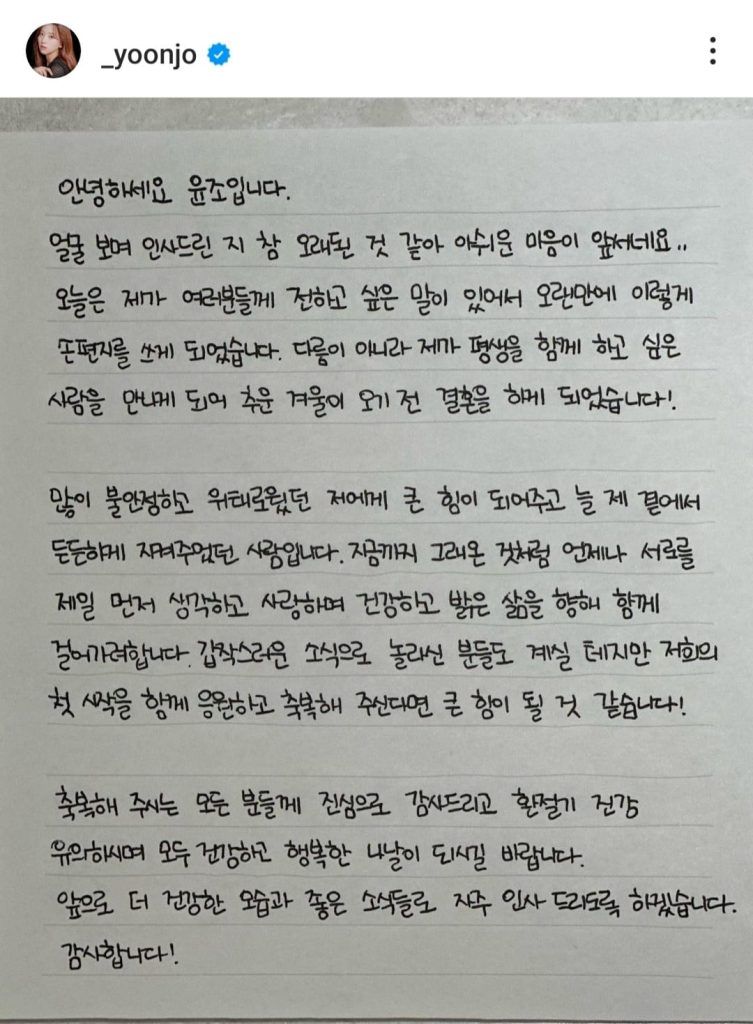 _yoonjo
안녕하세요 윤조입니다.
얼굴 보며 인사드린 지 참 오래된 것 같아 아쉬운 마음이 앞서네요..
오늘은 제가 여러분들께 전하고 싶은 말이 있어서 오랜만에 이렇게
손편지를 쓰게 되었습니다. 다름이 아니라 제가 평생을 함께 하고 싶은
사람을 만나게 되어 추운 겨울이 오기 전 결혼을 하게 되었습니다!
많이 불안정하고 위태로웠던 저에게 큰 힘이 되어주고 늘 제 곁에서
든든하게 지켜주었던 사람입니다. 지금까지 그래온 것처럼 언제나 서로를
제일 먼저 생각하고 사랑하며 건강하고 밝은 삶을 향해 함께
걸어가려합니다. 갑작스러운 소식으로 놀라신 분들도 계실 테지만 저희의
첫 시작을 함께 응원하고 축복해 주신다면 큰 힘이 될 것 같습니다!
축복해 주시는 모든 분들께 진심으로 감사드리고 환절기 건강
유의하시며 모두 건강하고 행복한 나날이 되시길 바랍니다.
앞으로 더 건강한 모습과 좋은 소식들로 자주 인사 드리도록 하겠습니다.
감사합니다!